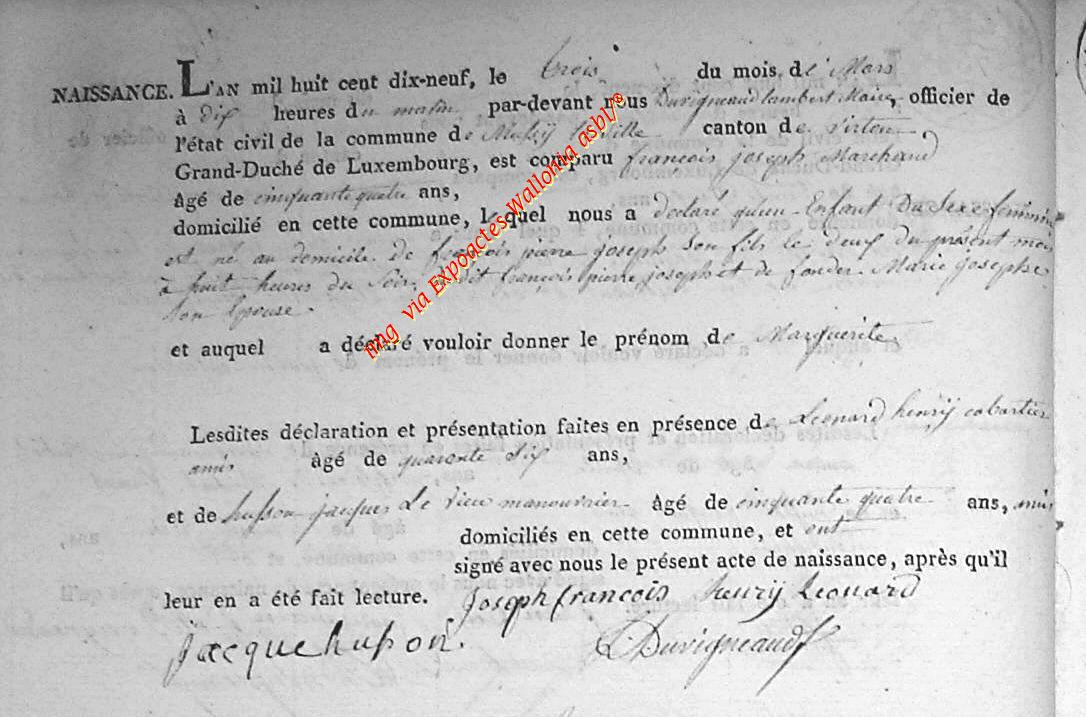 NAISSANCE. L'AN mil huit cent dix-neuf, le trois du mois de Mars
à dix heures du matin par-devant nous Duvigneaud Lambert Maire, officier de
l'état civil de la commune de Ville canton de Virton
Grand-Duché de Luxembourg, est comparu françois joseph Marchand
âgé de cinquante quatre ans,
domicilié en cette commune, lequel nous a déclaré qu'un Enfant Du Sexe feminin
est né au domicile de françois pierre joseph son fils le deux du présent mois
à huit heures du Soir, dudit françois pierre joseph et de fonder Marie josephe
Son Epouse.
et auquel a déclaré vouloir donner le prénom de Marguerite
Lesdites déclaration et présentation faites en présence de Leonard henrÿ cabartier
amis âgé de quarente Six ans,
et de husson jacques Le vieu manouvrier âgé de cinquante quatre ans, amis
domiciliés en cette commune, et ont
signé avec nous le présent acte de naissance, après qu'il
leur en a été fait lecture. Joseph françois henrÿ Leonard
jacque husson. L Duvigneaud
img via Expoactes Wallonia asbl/®